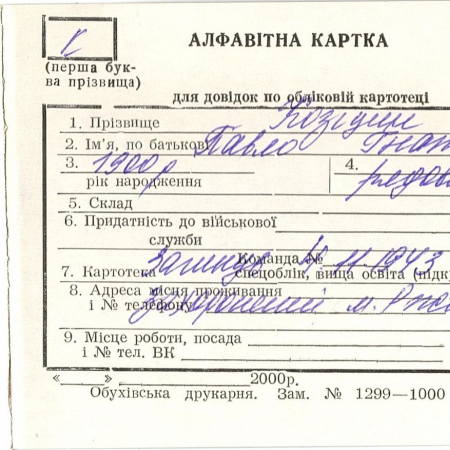 К
АЛФАВІТНА КАРТКА
(перша бук-
ва прізвища)
для довідок по обліковій картотеці
1. Прізвище
2. Ім'я, по батькові Павло Гнат
3. 1900 р
рік народження
4. рядов
5. Склад
6. Придатність до військової
служби
Команда № 10.11.1943
7. Картотека Загинув спецоблік, вища освіта (підк
8. Адреса місця проживання
і № телефону похоронений м.
9. Місце роботи, посада
і № тел. ВК
«___» 2000р.
Обухівська друкарня. Зам. № 1299—1000